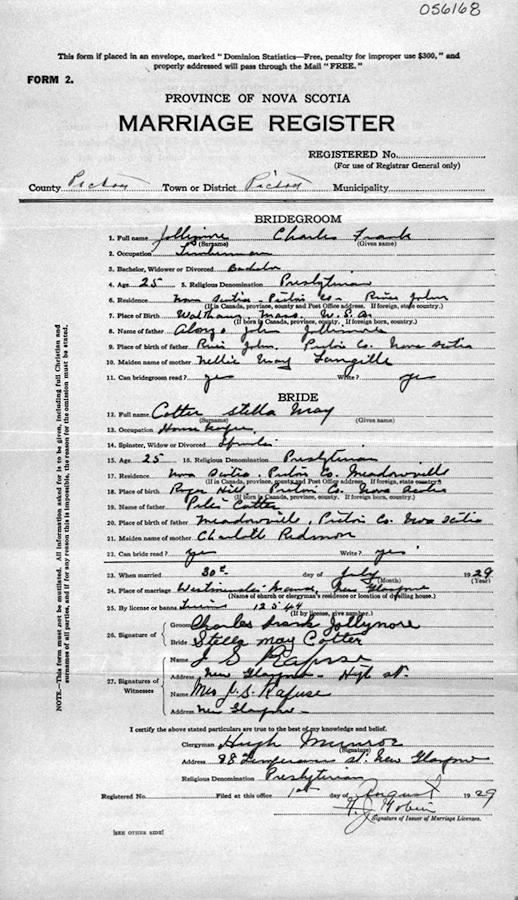 056168
This form if placed in an envelope, marked "Dominion Statistics—Free, penalty for improper use $300," and
properly addressed will pass through the Mail "FREE."
FORM 2.
PROVINCE OF NOVA SCOTIA
MARRIAGE REGISTER
REGISTERED No.
(For use of Registrar General only)
County Pictou Town or District Pictou Municipality
BRIDEGROOM
1. Full name Jollymore Charles Frank
(Surname) (Given name)
2. Occupation Lumberman
3. Bachelor, Widower or Divorced Bachelor
4. Age 25 5. Religious Denomination Presbyterian
6. Residence Nova Scotia Pictou Co— River John
(If in Canada, province, county and Post Office address. If foreign, state country.)
7. Place of Birth Waltham, Mass. U.S.A.
(If born in Canada, province, county. If foreign, country.)
8. Name of father Alonzo John Jollimore
9. Place of birth of father River John, Pictou Co. Nova Scotia
10. Maiden name of mother Nellie May Langille
11. Can bridegroom read? yes Write? yes
BRIDE
12. Full name Cotter Stella May
(Surname) (Given name)
13. Occupation House keeper
14. Spinster, Widow or Divorced Spinster
15. Age 25 16. Religious Denomination Presbyterian
17. Residence Nova Scotia. Pictou Co. Meadowville
(If in Canada, province, county and Post Office address. If foreign, state country.)
18. Place of birth Roger Hill, Pictou Co. Nova Scotia
(If born in Canada, province, county. If foreign, country.)
19. Name of father Peter Cotter
20. Place of birth of father Meadowville, Pictou Co. Nova Scotia
21. Maiden name of mother Charlotte Redmon
22. Can bride read? yes Write? yes
23. When married 30th day of July 1929
(Month) (Year)
24. Place of marriage Westminster Manse, New Glasgow
(Name of church or clergyman's residence or location of dwelling house.)
25. By license or banns 12544
(If by license, give number.)
26. Signature of Groom Charles Frank Jollymore
Bride Stella May Cotter
27. Signatures of Witnesses
Name J. S. Rafuse
Address New Glasgow— High St.
Name Mrs J. S. Rafuse
Address New Glasgow—
I certify the above stated particulars are true to the best of my knowledge and belief.
Clergyman Hugh Munroe
(Signature)
Address 98 Temperance St. New Glasgow
Religious Denomination Presbyterian
Registered No. Filed at this office 1st day of August 1929
Signature of Issuer of Marriage Licenses.
[SEE OTHER SIDE]
NOTE.—This form must not be mutilated. All information asked for is to be given, including full Christian and
surnames of all parties, and if for any reason this is impossible, the reason for the omission must be stated.